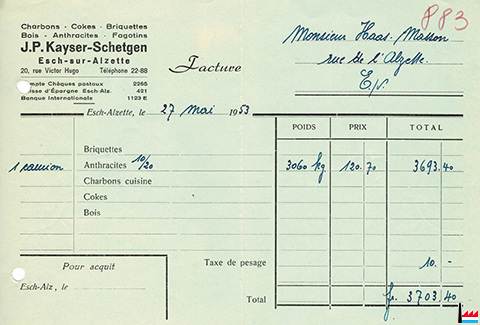 883
Charbons - Cokes - Briquettes
Bois - Anthracites - Fagotins
J.P. Kayser-Schetgen
Esch-sur-Alzette
20, rue Victor Hugo Téléphone 22-88
mpte Chèques postaux 2265
isse d'Épargne Esch-Alz. 421
Banque Internationale 1123 E
Facture
Monsieur Haas-Masson
rue de l'Alzette
E/s.
Esch-Alzette, le 27 mai 1953
POIDS PRIX TOTAL
Briquettes
1 camion Anthracites 10/20 3060 kg 120.70 3693.40
Charbons cuisine
Cokes
Bois
Taxe de pesage 10.-
Pour acquit
Esch-Alz, le
Total fr. 3703.40